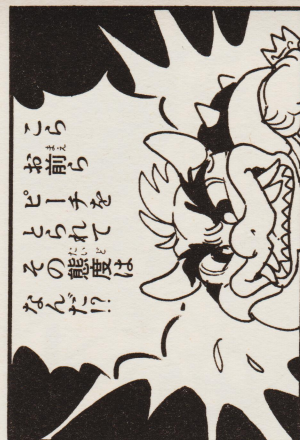 こら
お前ら
ピーチを
とられて
その態度は
なんだ!?